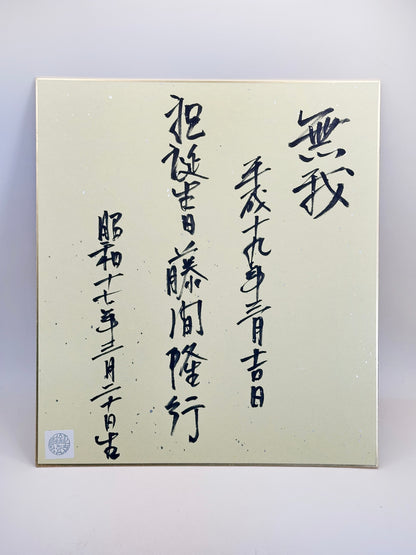 無我
平成十九年三月吉日
祝誕生日 藤間隆行
昭和十七年三月二十日生